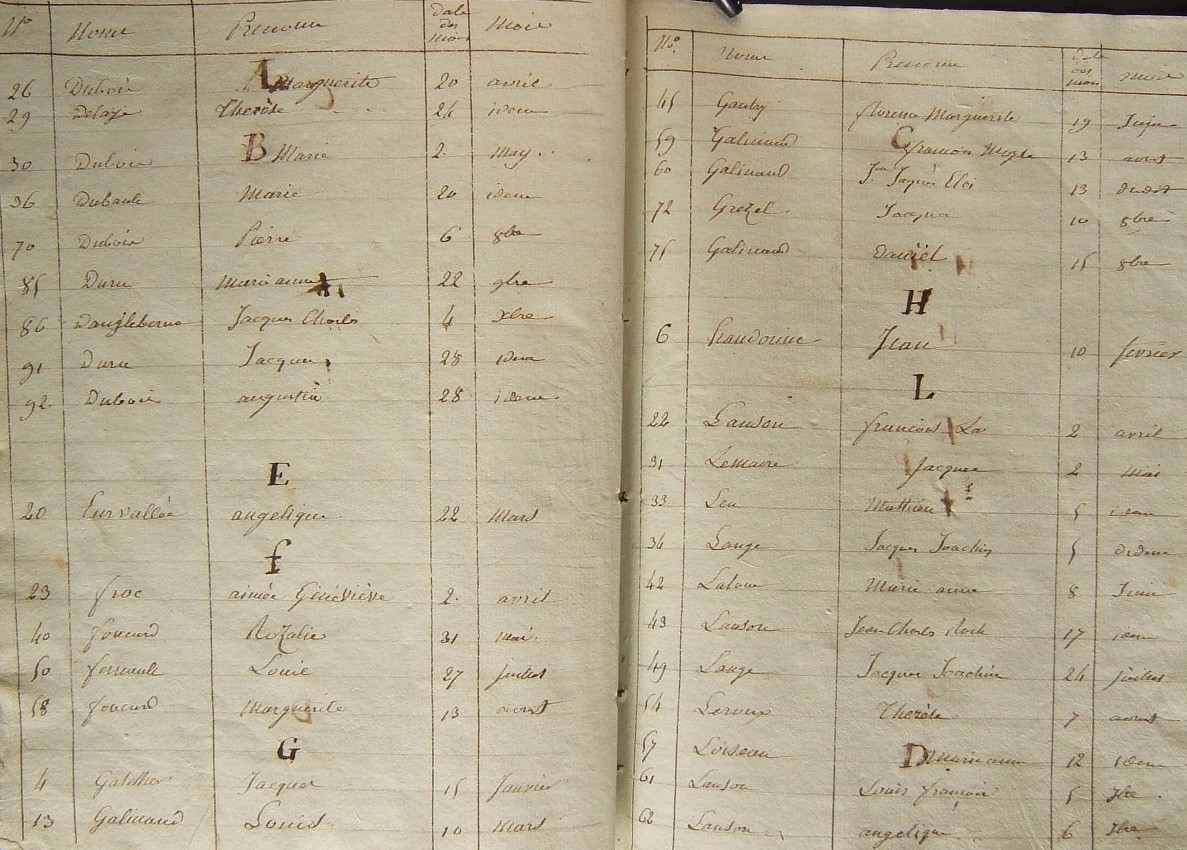 No Noms Prenoms date des mois Mois
A
26 Dubois Marguerite 20 avril
29 Delaye Therèse 24 idem
B
30 Dubois Marie 2. May.
36 Marie 20 idem
70 Dubois Pierre 6 8bre
85 Duru marie anne 22 9bre
86 Dangleberme Jacques Charles 4 Xbre
91 Duru Jacques 28 idem
92. Dubois augustin 28 idem
E
20 angelique 22 Mars
f
23 froc aimée Géneviève 2. avril
40 foucard Rozalie 31 mai.
50 ferrault Louis 27 juillet
58 foucard Marguerite 13 aoust
G
4 Jacques 15 Janvier
13 Galinand Louis 10 Mars
No. Noms Prenoms date des mois Mois
45 Gauby Marguerite 19 Juin
C
59 Galinand françois 13 aoust
60 Galinand Jn Jaques Eloi 13 dudit
72 Jacques 10 8bre
75 Galinand daniël 15 8bre
H
6 Jean 10 fevrier
L
22 Lanson françois 2 avril
31 Lemaire Jacques 2 mai
33 Leu Matthieu 5 idem
34 Lange Jacques Joachin 5 dudem
42 Marie anne 8 Juin
43 Lanson Jean Charles Roch 17 idem
49 Lange Jacques Joachin 24 juillet
54 Leroux Therèse 7 aoust
D
57 Loiseau marie anne 12 idem
61 Lanson Louis françois 5 7bre
62 Lanson angelique 6 7bre